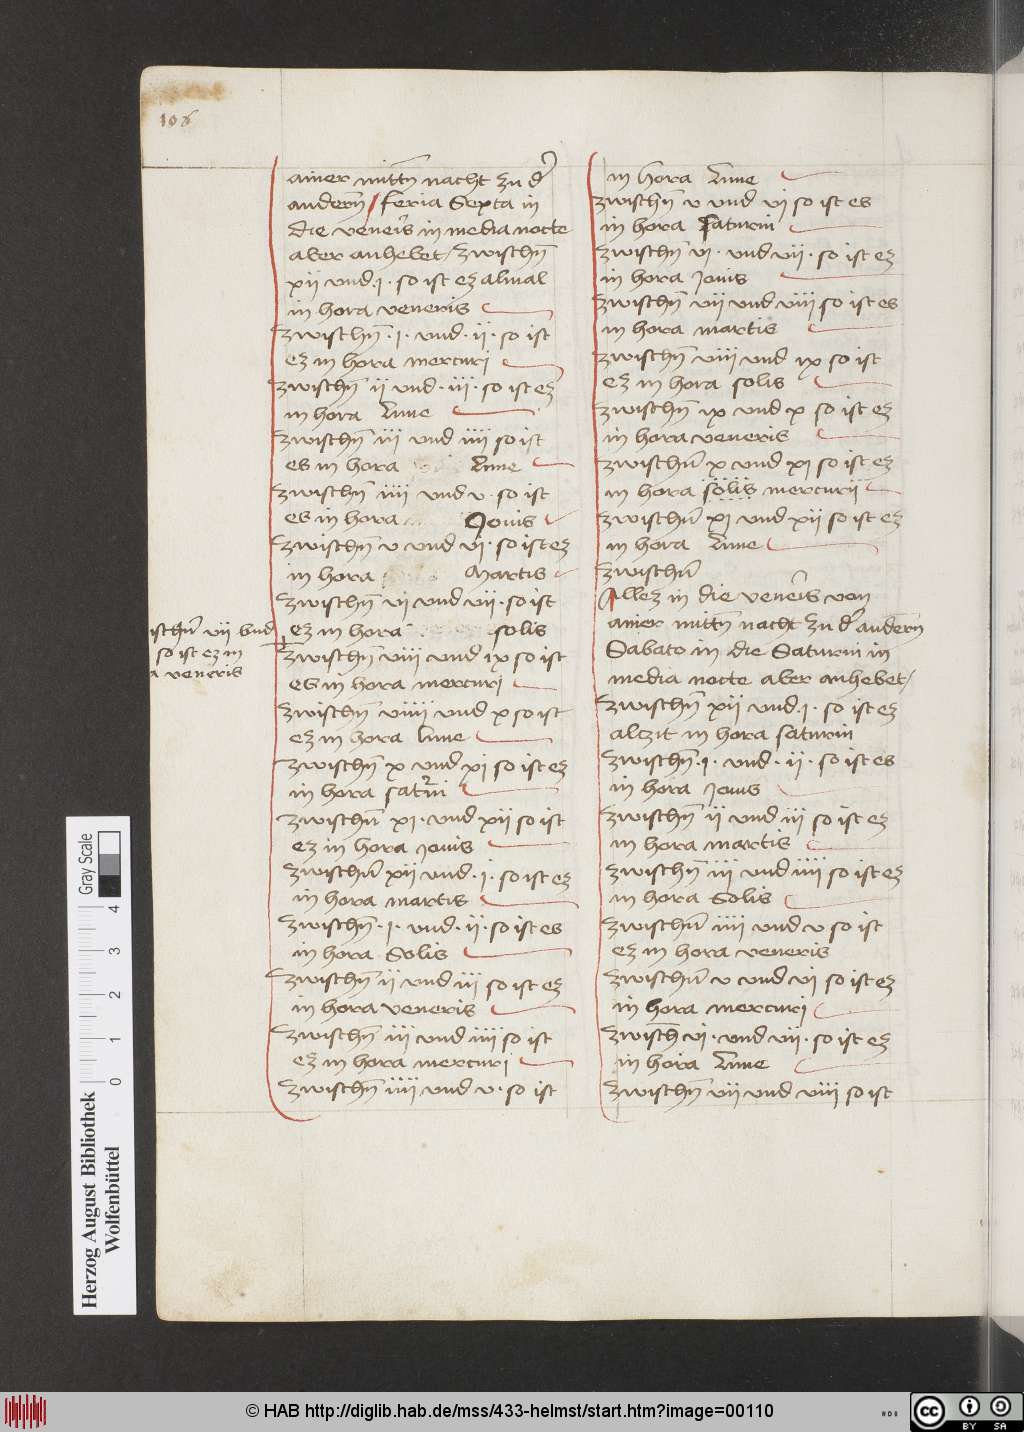 106
ainer mittn̄ nacht zu dʾ
andern̄ / feria Sexta in
die veneris in media nocte
aber anhebet / zwischn̄
xii vnd · i · so ist ez almal
in hora veneris
zwischn̄ · i · vnd · ii · so ist
ez in hora mercuri
zwischn̄ ii vnd · iii · so ist ez
in hora Lune
zwischn̄ iii vnd iiii so ist
es in hora Lune
zwischn̄ iiii vnd v · so ist
es in hora Jouis
zwischn̄ v vnd vi · so ist ez
in hora Martis
zwischn̄ vi vnd vii · so ist
ez in hora solis
ischn̄ vii vnd
so ist ez in
a veneris
zwischn̄ viii vnd ix so ist
es in hora mercuri
zwischn̄ viiii vnd x so ist
ez in hora lune
zwischn̄ x vnd xi so ist ez
in hora saturni
zwischn̄ xi · vnd xii so ist
ez in hora Jouis
zwischn̄ xii vnd · i · so ist ez
in hora martis
zwischn̄ · i · vnd · ii · so ist es
in hora Solis
zwischn̄ ii vnd iii so ist ez
in hora veneris
zwischn̄ iii vnd iiii so ist
ez in hora mercuri
zwischn̄ iiii vnd v · so ist
in hora Lune
zwischn̄ v vnd vi so ist es
in hora Saturni
zwischn̄ vi · vnd vii · so ist ez
in hora Jouis
zwischn̄ vii vnd viii so ist es
in hora martis
zwischn̄ viii vnd ix so ist
ez in hora solis
zwischn̄ ix vnd x so ist ez
in hora veneris
zwischn̄ x vnd xi so ist ez
in hora solis mercurii
zwischn̄ xi vnd xii so ist ez
in hora Lune
zwischn̄
Allez in die veneris von
ainer mittn̄ nacht zu dʾ andern̄
Sabato in die Saturni in
media nocte aber anhebet /
zwischn̄ xii vnd · i · so ist ez
alczit in hora saturni
zwischn̄ · i · vnd · ii · so ist es
in hora Jouis
zwischn̄ ii vnd iii so ist ez
in hora martis
zwischn̄ iii vnd iiii so ist ez
in hora Solis
zwischn̄ iiii vnd v so ist
ez in hora veneris
zwischn̄ v vnd vi so ist ez
in hora mercuri
zwisch̄ vi · vnd vii · so ist ez
in hora Lune
zwischn̄ vii vnd viii so ist
Herzog August Bibliothek
Wolfenbüttel
0 1 2 3 4
Gray Scale
© HAB http://diglib.hab.de/mss/433-helmst/start.htm?image=00110
HAB
cc BY SA